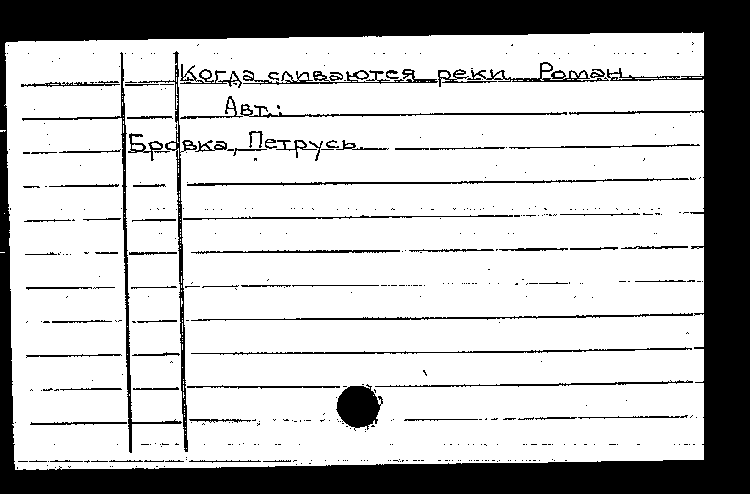 Когда сливаются реки Роман.
Авт.:
Бровка, Петрусь.